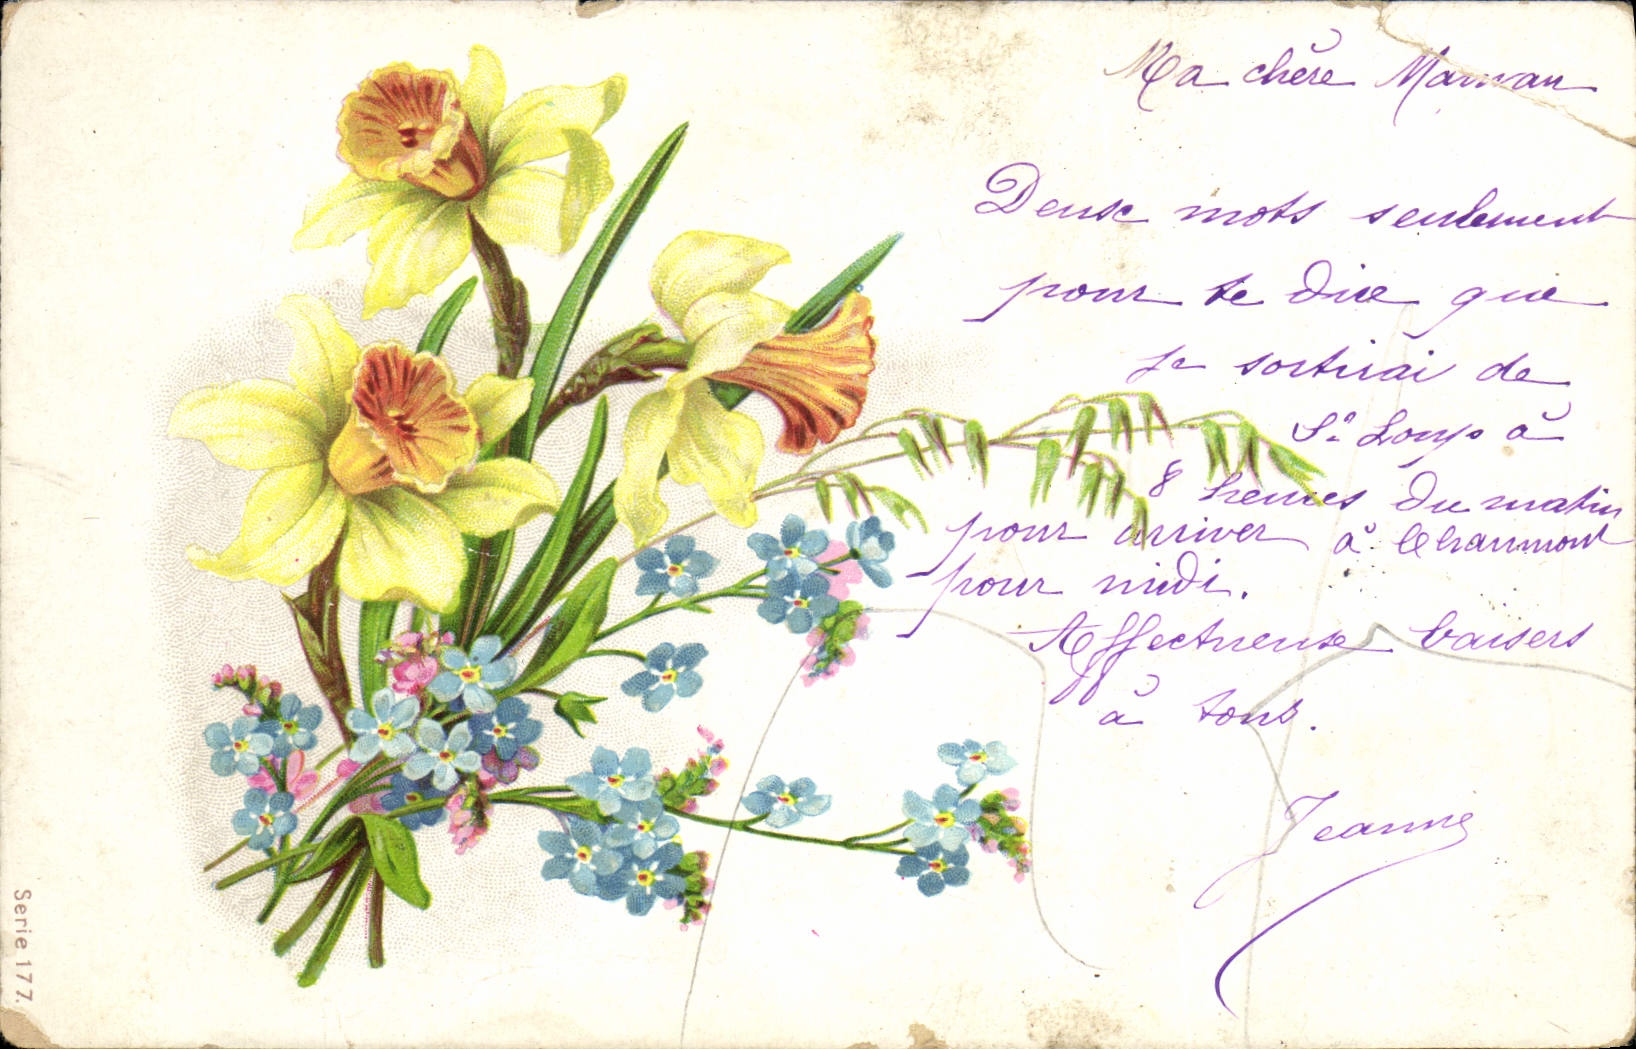 Ma chère Maman
Deux mots seulement
pour te dire que
je sortirai de
St Loup à
8 heures du matin
pour arriver à Chaumont
pour midi.
Affectueuse baisers
à tous.
Jeanne
Serie 177.